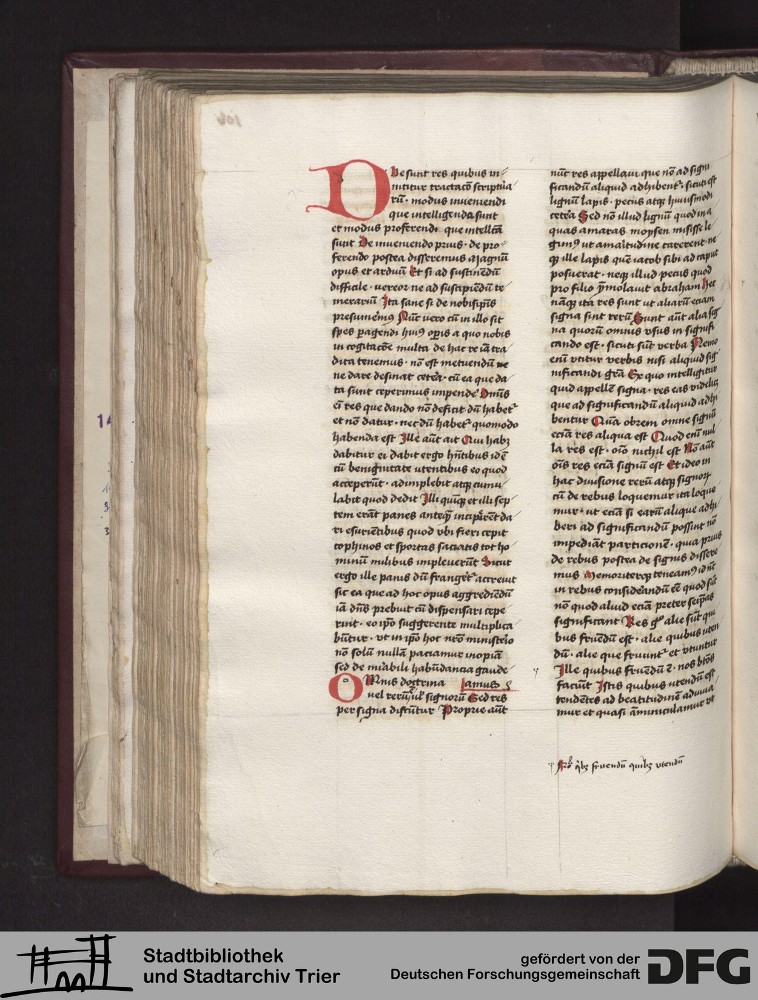 Due sunt res quibus in-
nititur tractatō scriptura
rū · modus inveniendi
que intelligenda sunt
et modus proferendi que intellcā
sunt De inueniendo prius · de pro-
ferendo postea disseremus Magnū
opus et arduū Et si ad sustinēdū
difficile · vereor ne ad suscipiēdū te
merariū Ita sane si de nobisipīs
presumem9 Nūc vero cū in illo sit
spes pagendi hui9 opīs a quo nobis
in cogitacōe multa de hac re iā tra
dita tenemus · nō est metuendū ne
ne dare desinat cetea · cū ea que da
ta sunt ceperimus impende Omīs
em̄ res que dando nō deficit dū habet
et nō datur · nec dū habet quomodo
habenda est Ille aūt ait Qui habz
dabitur ei dabit ergo hn̄tibus id ē
cū benignitate utentibus eo quod
acceperūt · adimplebit atqz cumu
labit quod dedit Illi quīqz et illi sep-
tem erāt panes anteqz inciperēt da-
ri esurientibus quod vbi fieri cepit
cophinos et sportas saciatis tot ho
minū milibus impleuerūt Sicut
ergo ille panis dū frangeret acreuit
sic ea que ad hoc opus aggrediēdū
iā dn̄s prebuit cū dispensari cepe
rint · eo ipō suggerente multiplica
būtur · vt in ipō hoc nrō ministerio
nō solū nullā paciamur inopiā
sed de mirabili habūdancia gaude
Omnis doctrina amus
vel rerū vel signorū Sed res
per signa discūtur Proprie aūt
nūc res appellaui que nō ad signi
ficandū aliquid adhibent · sicuti est
lignū lapis · pecus atqz huiusmodi
cetera Sed nō illud lignū quod in a
quas amaras moysen misisse le
gim9 ut amaritudine carerent ne
qz ille lapis quē iacob sibi ad caput
posuerat · neqz illud pecus quod
pro filio ymolauit abraham Hec
nāqz ita res sunt ut aliarū eciam
signa sint rerū Sunt aūt alia sig
na quorū omnis vsus in signifi
cando est · sicuti sūt verba Nemo
em̄ vtitur verbis nisi aliquid sig
nificandi grā Ex quo intelligitur
quid appellē signa · res eas videlicz
que ad significandū aliquid adhi
bentur Quā obrem omne signū
eciā res aliqua est Quod em̄ nul
la res est · oīo nichil est Nō aūt
oīs res eciā signū est Et ideo in
hac diuisione rerū atqz signorꝝ
cū de rebus loquemur ita loque
mur · ut eciā si earū alique adhi
beri ad significandū possint nō
impediāt particionē · qua prius
de rebus postea de signis dissere
mus Memoriterqz teneam9 id nūc
in rebus considerandū eē quod sūt
nō quod aliud eciā preter seipsas
significant Res go alie sūt qui
bus fruēdū est · alie quibus uten
dū · alie que fruunt et vtuntur
Ille quibus fruēdū ē · nos btōs
faciūt Istis quibus utendū est
tendētes ad beatitudinē adiuua
mur et quasi āminiculamur vt
qibz fruendū quibz vtendū
Stadtbibliothek
und Stadtarchiv Trier
gefördert von der
Deutschen Forschungsgemeinschaft
DFG